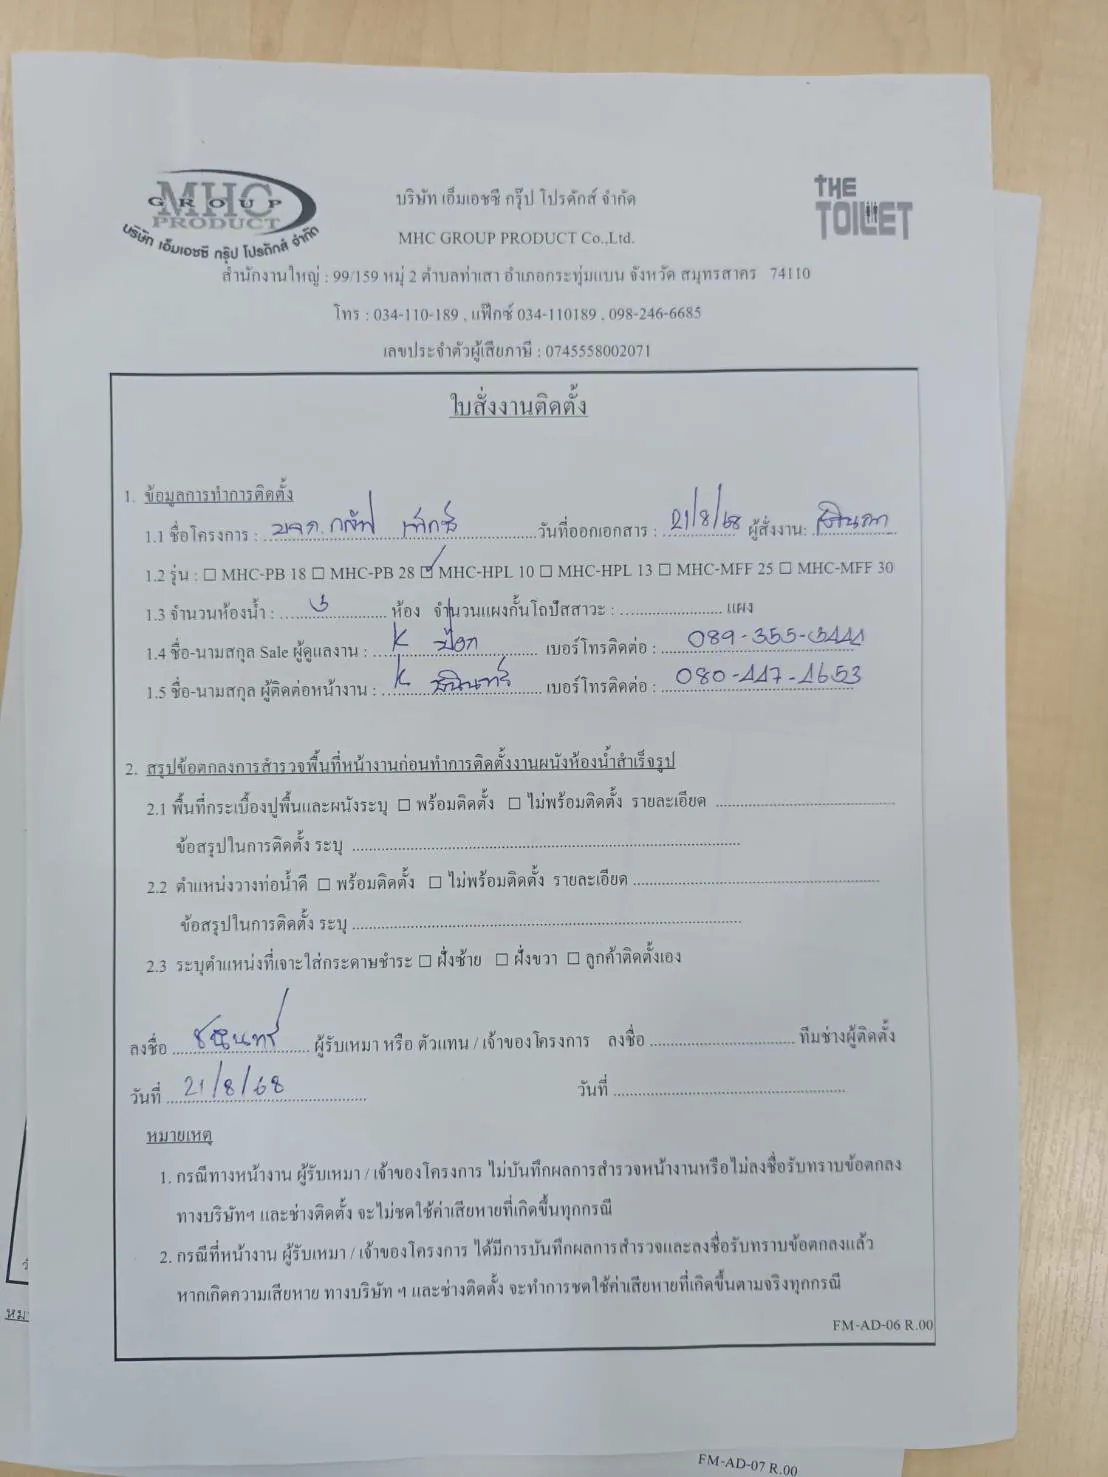 MHC
GROUP
PRODUCT
บริษัท เอ็มเอชซี กรุ๊ป โปรดักส์ จำกัด
THE
TOILET
บริษัท เอ็มเอชซี กรุ๊ป โปรดักส์ จำกัด
MHC GROUP PRODUCT Co.,Ltd.
สำนักงานใหญ่ : 99/159 หมู่ 2 ตำบลท่าเสา อำเภอกระทุ่มแบน จังหวัด สมุทรสาคร 74110
โทร : 034-110-189 , แฟ็กซ์ 034-110189 , 098-246-6685
เลขประจำตัวผู้เสียภาษี : 0745558002071
ใบสั่งงานติดตั้ง
1. ข้อมูลการทำการติดตั้ง
1.1 ชื่อโครงการ : บจก. วันที่ออกเอกสาร : 21/8/68 ผู้สั่งงาน:
1.2 รุ่น : ☐ MHC-PB 18 ☐ MHC-PB 28 ☑ MHC-HPL 10 ☐ MHC-HPL 13 ☐ MHC-MFF 25 ☐ MHC-MFF 30
1.3 จำนวนห้องน้ำ : ห้อง จำนวนแผงกั้นโถปัสสาวะ : แผง
1.4 ชื่อ-นามสกุล Sale ผู้ดูแลงาน : K เบอร์โทรติดต่อ : 089-355-3444
1.5 ชื่อ-นามสกุล ผู้ติดต่อหน้างาน : K ชนินทร์ เบอร์โทรติดต่อ : 080-447-4653
2. สรุปข้อตกลงการสำรวจพื้นที่หน้างานก่อนทำการติดตั้งงานผนังห้องน้ำสำเร็จรูป
2.1 พื้นที่กระเบื้องปูพื้นและผนังระบุ ☐ พร้อมติดตั้ง ☐ ไม่พร้อมติดตั้ง รายละเอียด
ข้อสรุปในการติดตั้ง ระบุ
2.2 ตำแหน่งวางท่อน้ำดี ☐ พร้อมติดตั้ง ☐ ไม่พร้อมติดตั้ง รายละเอียด
ข้อสรุปในการติดตั้ง ระบุ
2.3 ระบุตำแหน่งที่เจาะใส่กระดาษชำระ ☐ ฝั่งซ้าย ☐ ฝั่งขวา ☐ ลูกค้าติดตั้งเอง
ลงชื่อ ชนินทร์ ผู้รับเหมา หรือ ตัวแทน / เจ้าของโครงการ ลงชื่อ ทีมช่างผู้ติดตั้ง
วันที่ 21/8/68 วันที่
หมายเหตุ
1. กรณีทางหน้างาน ผู้รับเหมา / เจ้าของโครงการ ไม่บันทึกผลการสำรวจหน้างานหรือไม่ลงชื่อรับทราบข้อตกลง
ทางบริษัทฯ และช่างติดตั้ง จะไม่ชดใช้ค่าเสียหายที่เกิดขึ้นทุกกรณี
2. กรณีที่หน้างาน ผู้รับเหมา / เจ้าของโครงการ ได้มีการบันทึกผลการสำรวจและลงชื่อรับทราบข้อตกลงแล้ว
หากเกิดความเสียหาย ทางบริษัท ฯ และช่างติดตั้ง จะทำการชดใช้ค่าเสียหายที่เกิดขึ้นตามจริงทุกกรณี
FM-AD-06 R.00
FM-AD-07 R.00